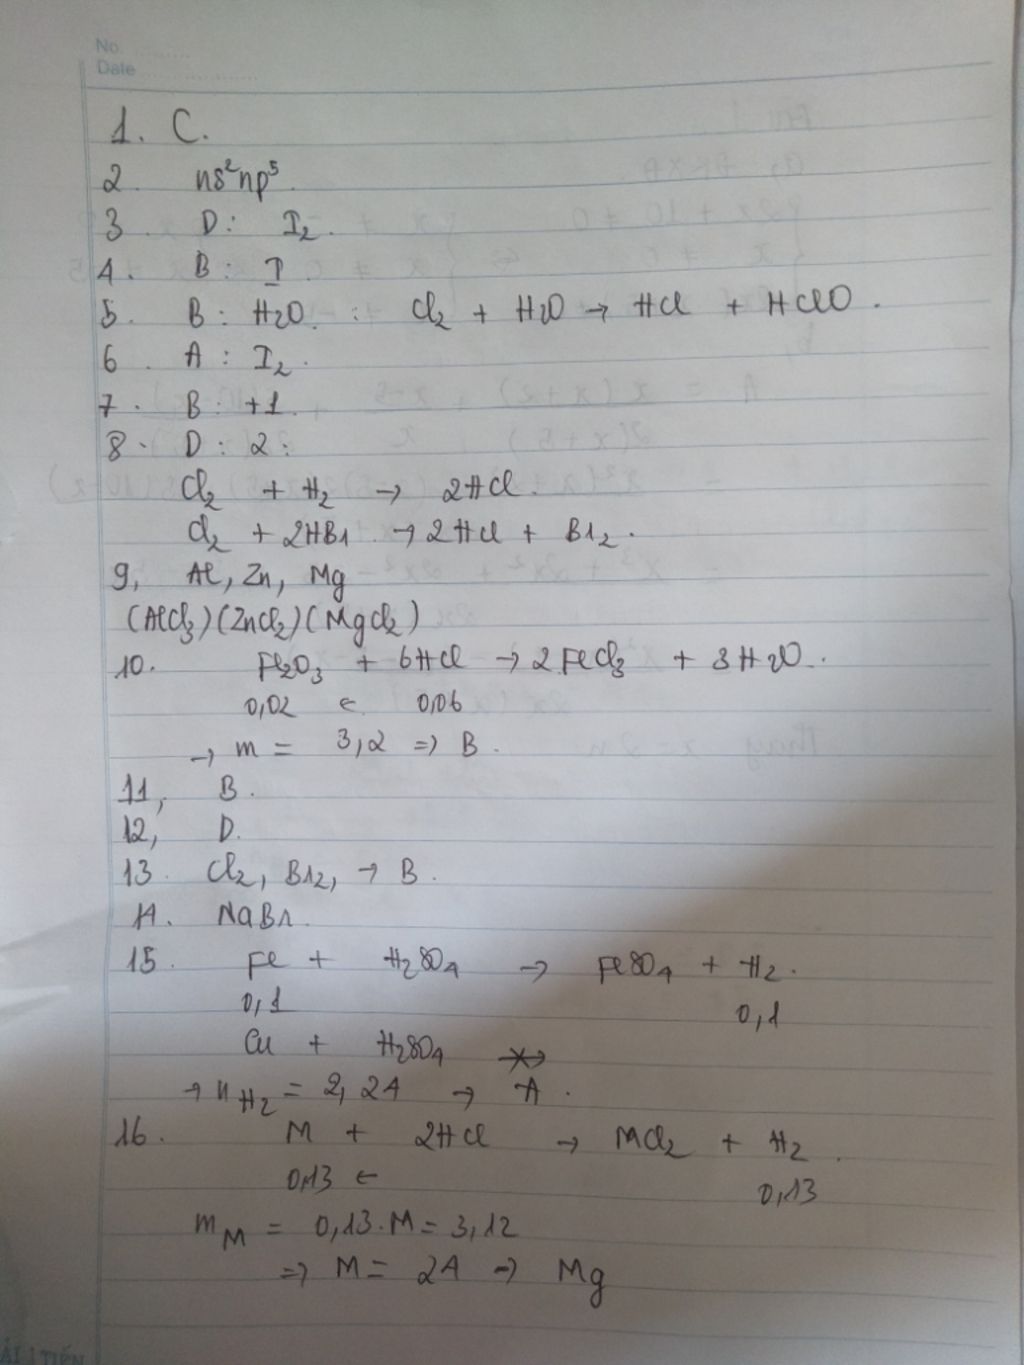 No. ..........
Date ....................
1. C.
2. ns²np⁵.
3 D: I₂.
4. B: I
5. B: H₂O. : Cl₂ + H₂O → HCl + HClO.
6. A: I₂.
7. B: +1.
8. D: 2:
Cl₂ + H₂ → 2HCl.
Cl₂ + 2HBr → 2HCl + Br₂.
9, Al, Zn, Mg
(AlCl₃)(ZnCl₂)(MgCl₂)
10. Fe₂O₃ + 6HCl → 2FeCl₃ + 3H₂O.
0,02 ← 0,06
→ m = 3,2 => B.
11, B.
12, D.
13. Cl₂, Br₂, → B.
14. NaBr.
15. Fe + H₂SO₄ → FeSO₄ + H₂.
0,1 0,1
Cu + H₂SO₄ ↛
→ n H₂ = 2,24 → A.
16. M + 2HCl → MCl₂ + H₂.
0,13 ← 0,13
m M = 0,13.M = 3,12
=> M = 24 → Mg